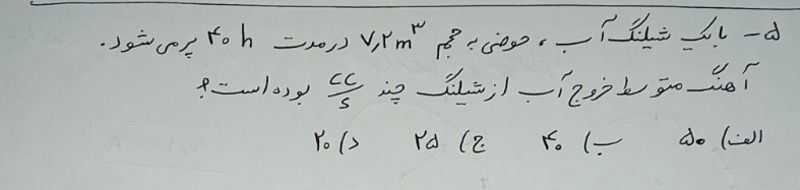 ۵- با یک شیلنگ آب، حوضی به حجم ۷٫۲m³ در مدت ۴۰h پر می شود.
آهنگ متوسط خروج آب از شیلنگ چند cc/s بوده است؟
الف) ۵۰ ب) ۴۰ ج) ۲۵ د) ۲۰